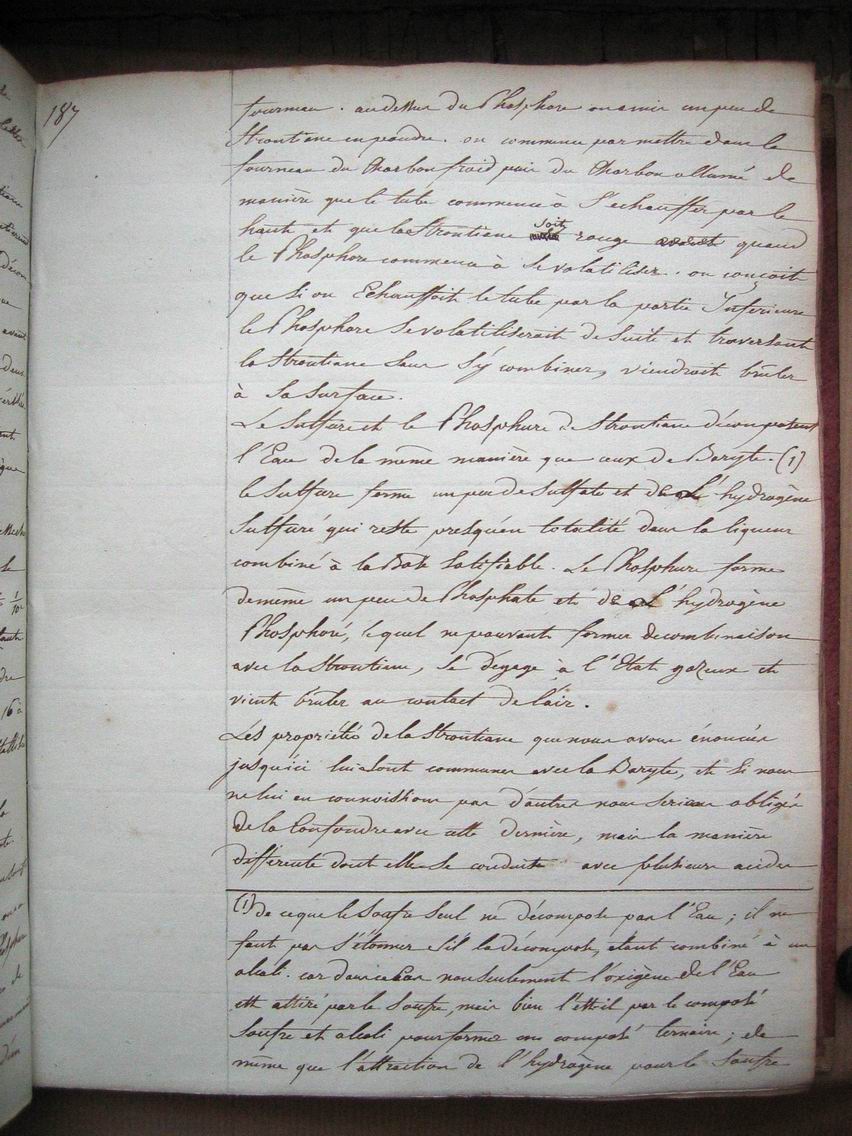 187
fourneau. au dessus du Phosphore on a mis un peu de
Strontiane en poudre. on commence par mettre dans le
fourneau du Charbon froid puis du Charbon allumé de
manière que le tube commence à S'échauffer par le
haut et que la Strontiane soit rouge quand
le Phosphore commence à se volatiliser. on conçoit
que Si on Echauffoit le tube par la partie Inférieure
le Phosphore Se volatiliserait de Suite et traversant
la Strontiane Sans S'y combiner, viendroit brûler
à Sa Surface.
Le Sulfure et le Phosphure de Strontiane décomposent
l'Eau de la même manière que ceux de Baryte. (1)
le Sulfure forme un peu de Sulfate et de L'hydrogène
Sulfuré qui reste presqu'en totalité dans la liqueur
combiné à la Base Salifiable. Le Phosphure forme
de même un peu de Phosphate et de L'hydrogène
Phosphoré, lequel ne pouvant former de combinaison
avec la Strontiane, Se dégage à l'Etat gazeux et
vient brûler au contact de l'air.
Les propriétés de la Strontiane que nous avons énoncées
jusqu'ici lui Sont communes avec la Baryte, et Si nous
ne lui en connoissions pas d'autres nous Serions obligés
de la Confondre avec cette dernière, mais la manière
différente dont elle Se conduit avec plusieurs acides
(1) De ce que le Soufre Seul ne décompose pas l'Eau; il ne
faut pas S'étonner S'il la décompose, étant combiné à un
alcali. car dans ce Cas non Seulement l'oxigène de l'Eau
est attiré par le Soufre, mais bien l'est il par le composé
Soufre et alcali pour former un composé ternaire; de
même que l'attraction de l'hydrogène pour le Soufre